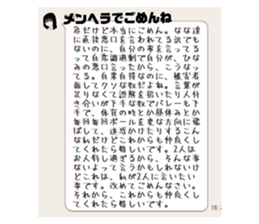 メンヘラでごめんね
急だけど本当にごめん。なな達
に直接悪口を言われてる訳でも
ないのに、自分の事を言ってる
って自意識過剰で自分が、ひな
みの悪口言ったから、こうなっ
てる。自業自得なのに、被害者
面してクソな奴だよね。言葉が
足りなくて誤解を招いたり人付
き合いが下手な奴でバレーも下
手で、体育の時とか昼休みとか
毎日毎回ボールを変な方向に飛
ばして、迷惑かけたりするこん
なわだけどこれからも仲良くし
てくれたら嬉しいです。2人は
お人好し過ぎるから、そんな事
ないよって言うかもしれない
けどこれは、私が2人に言いたい
事です。改めてごめんなさい。
それから、これからも仲良くし
てくれたら嬉しいです。